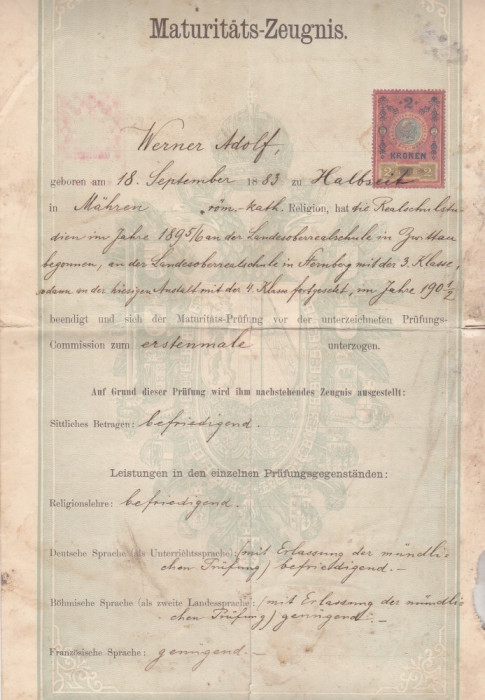 Maturitäts-Zeugnis.
2
KRONEN
2 2
Werner Adolf,
geboren am 18. September 1883 zu Halbseit
in Mähren röm.-kath. Religion, hat die Realschulstu-
dien im Jahre 1895/6 an der Landesoberrealschule in Zwittau
begonnen, an der Landesoberrealschule in Sternberg mit der 3. Klasse,
sodann an der hiesigen Anstalt mit der 4. Klasse fortgesetzt, im Jahre 190 1/2
beendigt und sich der Maturitäts-Prüfung vor der unterzeichneten Prüfungs-
Commission zum erstenmale unterzogen.
Auf Grund dieser Prüfung wird ihm nachstehendes Zeugnis ausgestellt:
Sittliches Betragen: befriedigend.
Leistungen in den einzelnen Prüfungsgegenständen:
Religionslehre: befriedigend.
Deutsche Sprache (als Unterrichtssprache): (mit Erlassung der mündli-
chen Prüfung) befriedigend.—
Böhmische Sprache (als zweite Landessprache): (mit Erlassung der mündli-
chen Prüfung) genügend.—
Französische Sprache: genügend.—